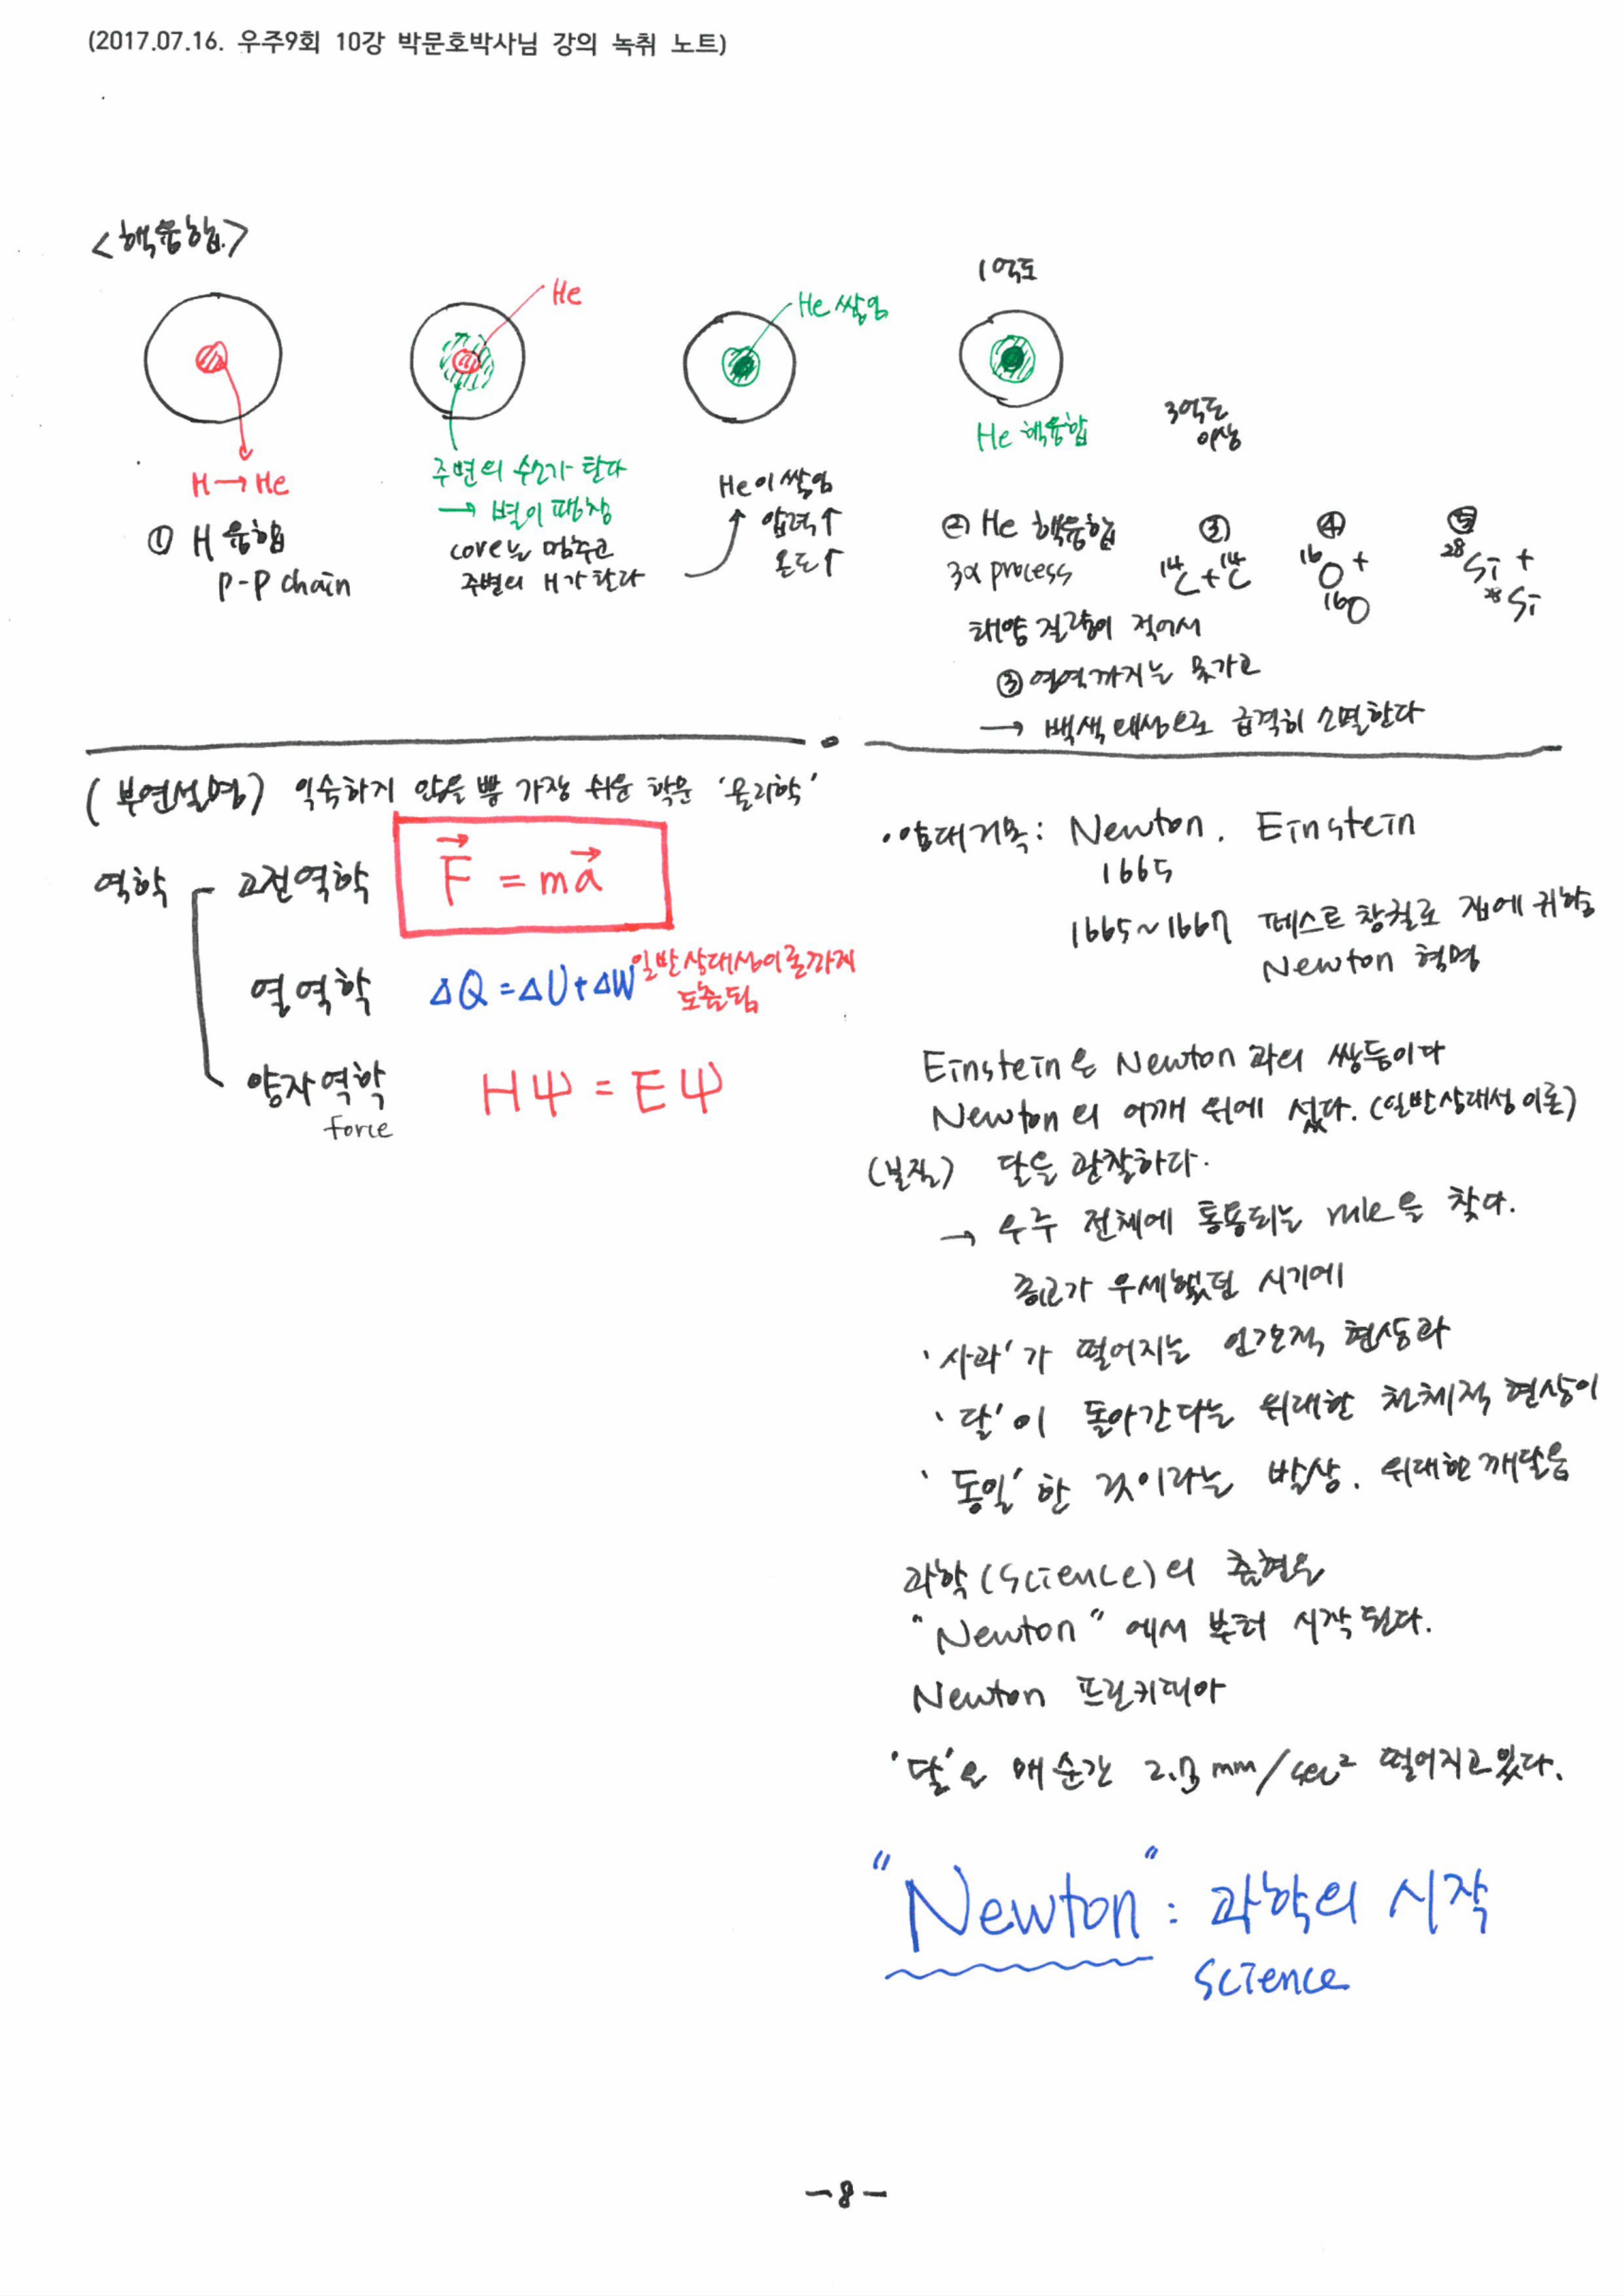 (2017.07.16. 우주9회 10강 박문호박사님 강의 녹취 노트)
<핵융합>
He
He 쌓임
1억도
H → He
① H 융합
P-P chain
주변의 수소가 탄다
→ 별이 팽창
core는 멈추고
주변의 H가 탄다
He이 쌓임
압력↑
온도↑
He 핵융합
3억도
이상
② He 핵융합
3α process
③
¹⁴C + ¹⁴C
④
¹⁶O +
¹⁶O
⑤
²⁸Si +
²⁸Si
태양 질량이 적어서
③ 영역까지는 못가고
→ 백색왜성으로 급격히 소멸한다
(부연설명) 익숙하지 않을 뿐 가장 쉬운 학문 '물리학'
역학
고전역학
F = ma
열역학
ΔQ = ΔU + ΔW
일반상대성이론까지
도출됨
양자역학
force
Hψ = Eψ
· 양대거목: Newton. Einstein
1665
1665~1667 페스트 창궐로 집에 귀향
Newton 혁명
Einstein은 Newton 과의 쌍둥이다
Newton의 어깨 위에 섰다. (일반상대성 이론)
(본질) 달을 관찰하다.
→ 우주 전체에 통용되는 rule을 찾다.
종교가 우세했던 시기에
'사과'가 떨어지는 인간적 현상과
'달'이 돌아간다는 위대한 천체적 현상이
'동일'한 것이라는 발상. 위대한 깨달음
과학(Science)의 출현은
"Newton"에서 부터 시작된다.
Newton 프린키피아
'달'은 매순간 mm/sec² 떨어지고있다.
"Newton" : 과학의 시작
science
-8-